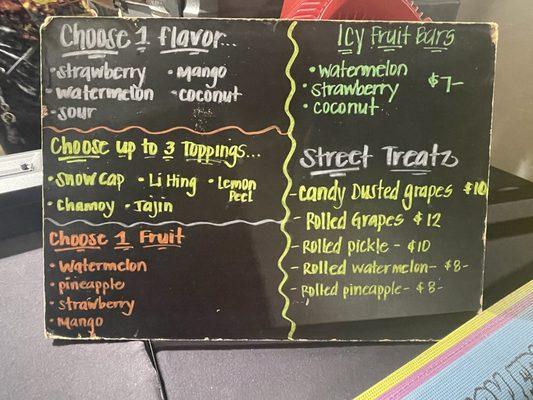 Choose 1 flavor...
• strawberry • mango
• watermelon • coconut
• sour
Choose up to 3 Toppings...
• Snow cap • Li Hing • Lemon Peel
• Chamoy • Tajin
Choose 1 Fruit
• Watermelon
• pineapple
• strawberry
• mango
Icy Fruit Bars
• watermelon
• strawberry $7-
• coconut
Street Treatz
- Candy Dusted grapes $10
- Rolled Grapes $12
- Rolled pickle - $10
- Rolled watermelon - $8-
- Rolled pineapple - $8-